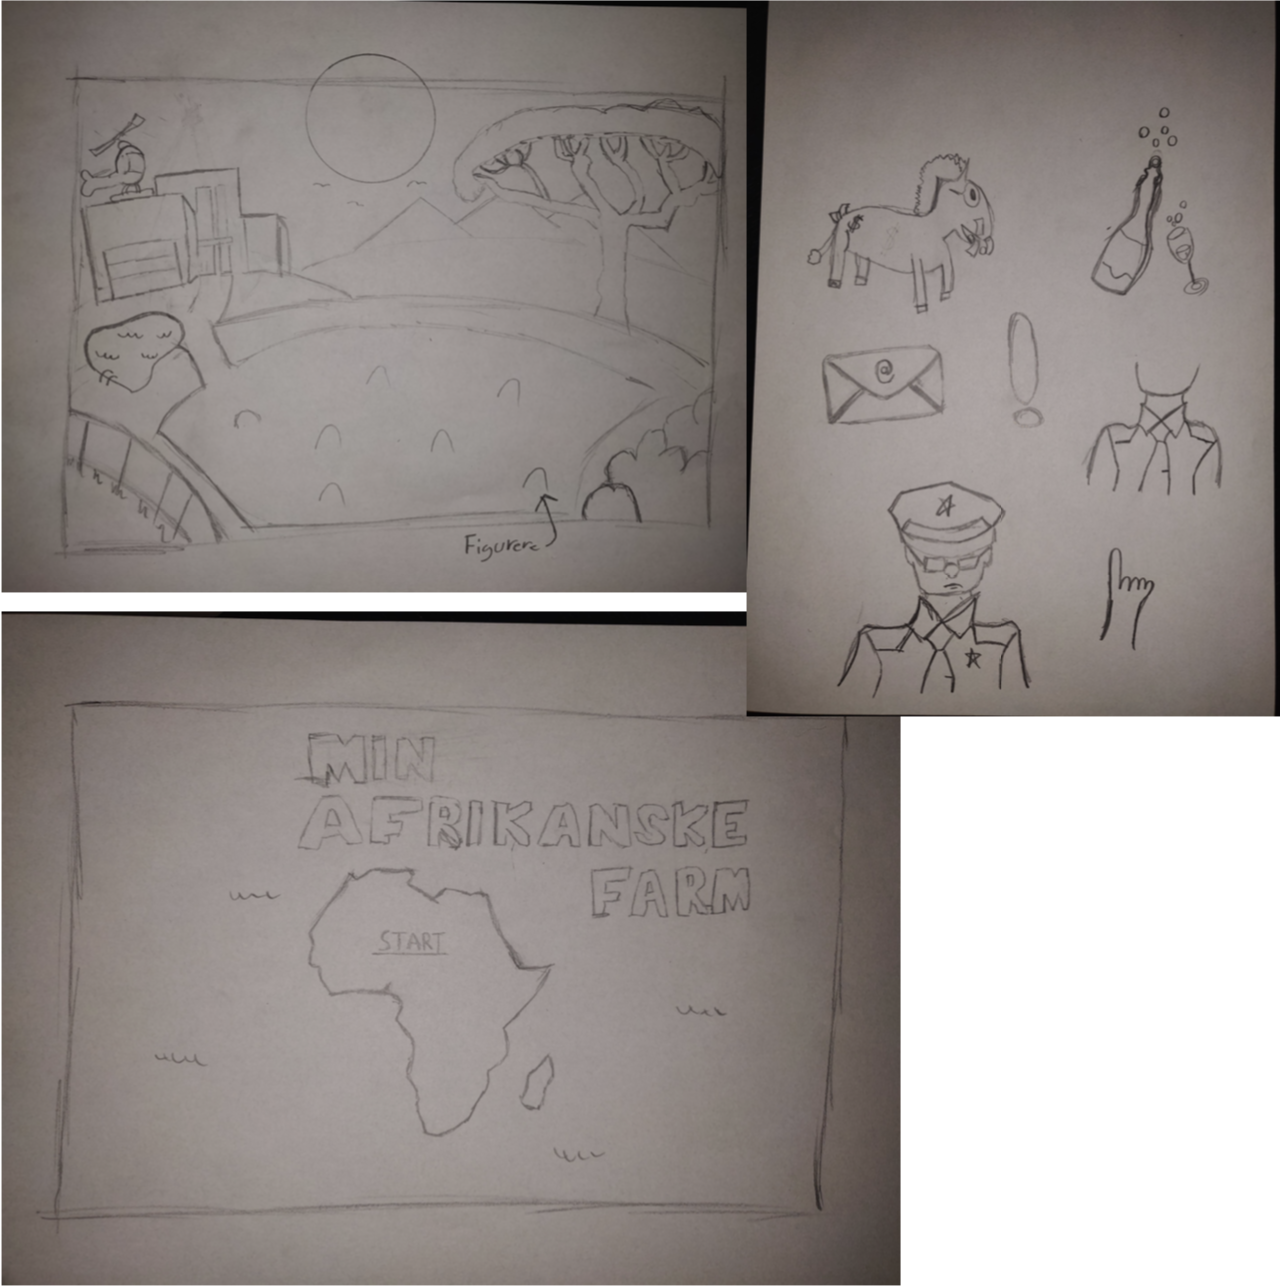 Figurere
@
MIN
AFRIKANSKE
FARM
START